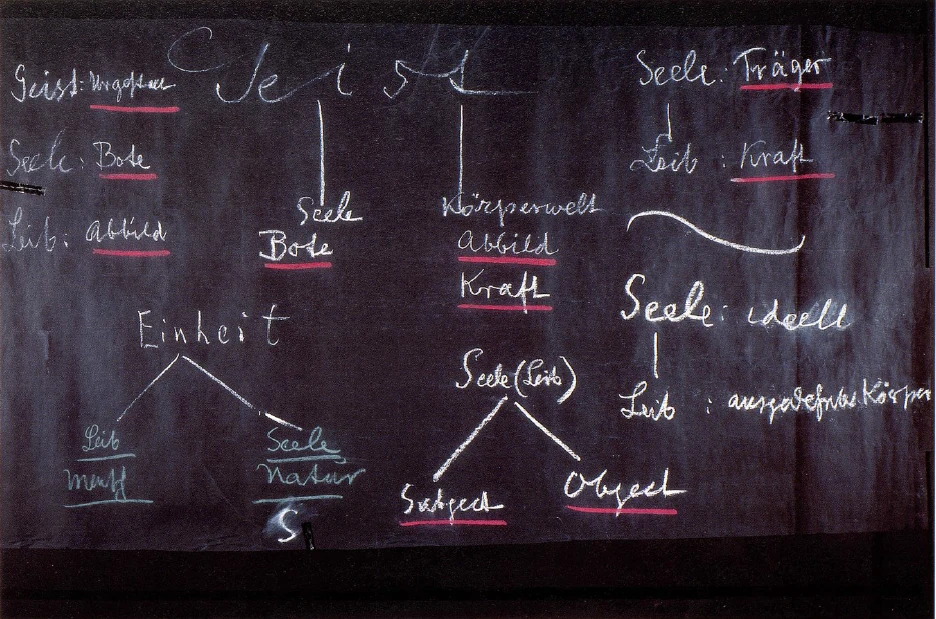 Geist
Geist:
Seele: Bote
Leib: Abbild
Seele
Bote
Körperwelt
Abbild
Kraft
Seele: Träger
Leib : Kraft
Seele: ideell
Leib : ausgedehnter Körper
Einheit
Leib
Mensch
Seele
Natur
S
Seele (Leib)
Subject
Object